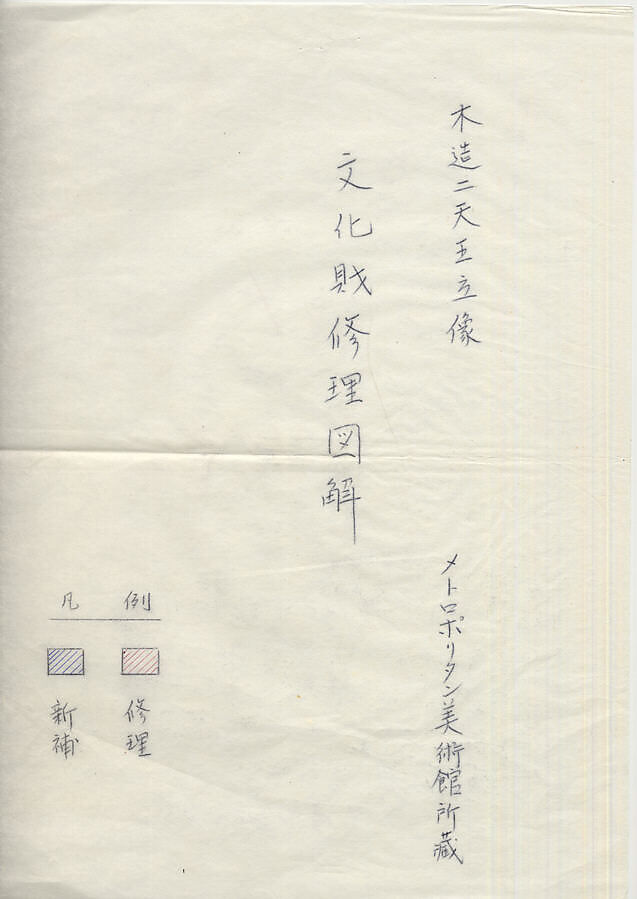 木造二天王立像
文化財修理図解
メトロポリタン美術館所蔵
凡例
修理
新補